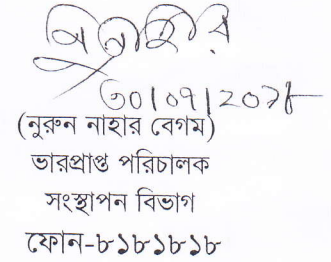 ৩০/০৭/২০১৮
(নুরুন নাহার বেগম)
ভারপ্রাপ্ত পরিচালক
সংস্থাপন বিভাগ
ফোন-৮১৮১৮১৮